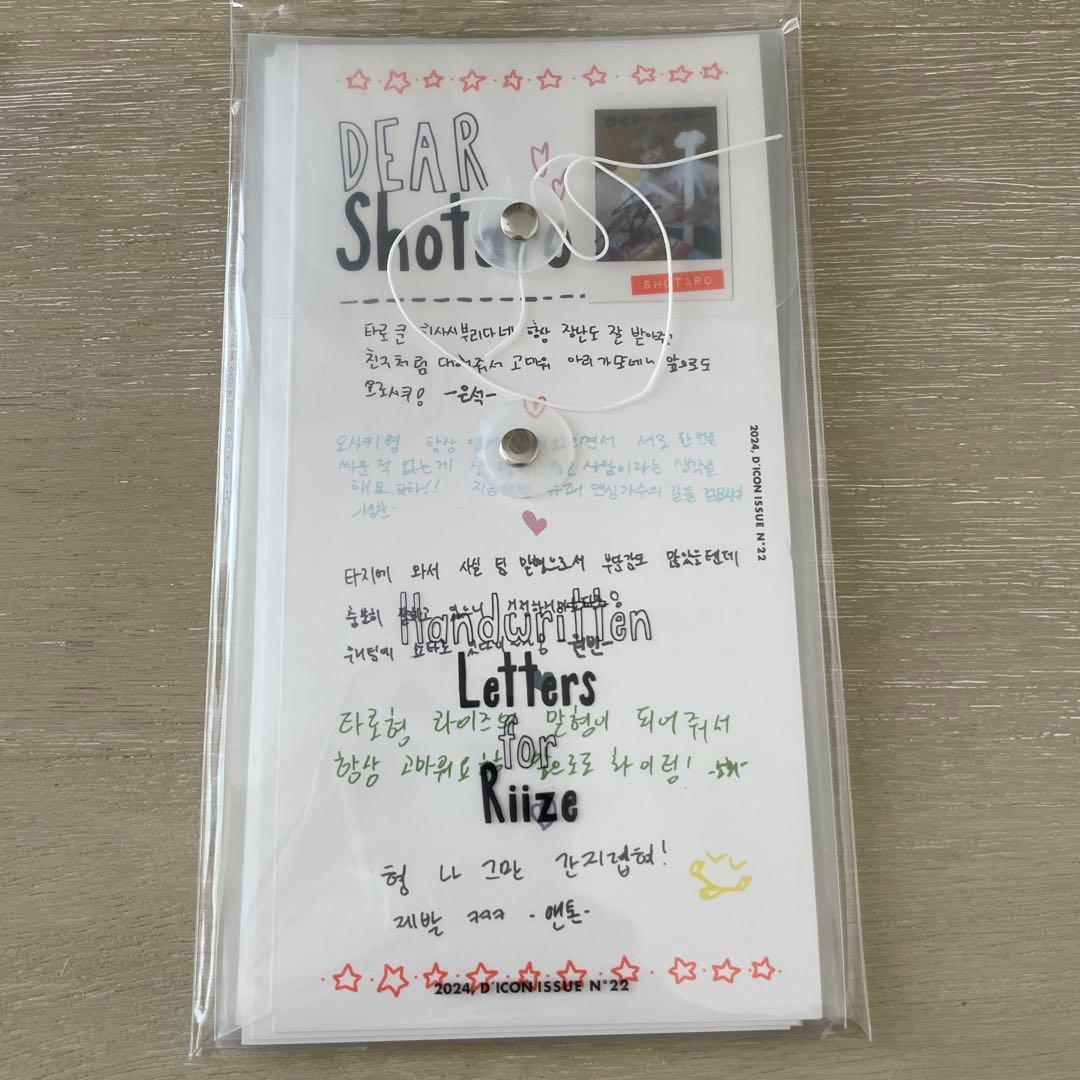 DEAR
Shotaro
SHOTARO
타로 큰 히사시부리다네 항상 장난도 잘 받아주
친구처럼 대해줘서 고마워 아리가또네~ 앞으로도
요로시쿠잉 -은석-
오사키 형 항상 서로 한번을
싸운 적 없는게 사람이라는 생각을
해요. 댄싱가수의 길을
-성찬-
타지에 와서 사실 팀 맏형으로서 부담감도 많았을텐데
충분히 잘하고 있으니
쇼타로 -원빈-
Handwritten
Letters
for
Riize
타로형 라이즈의 맏형이 되어줘서
항상 고마워요 형 앞으로도 화이팅!
형 나 그만 간지럽혀!
제발 ㅋㅋㅋ -앤톤-
2024, D'ICON ISSUE N°22
2024, D'ICON ISSUE N°22